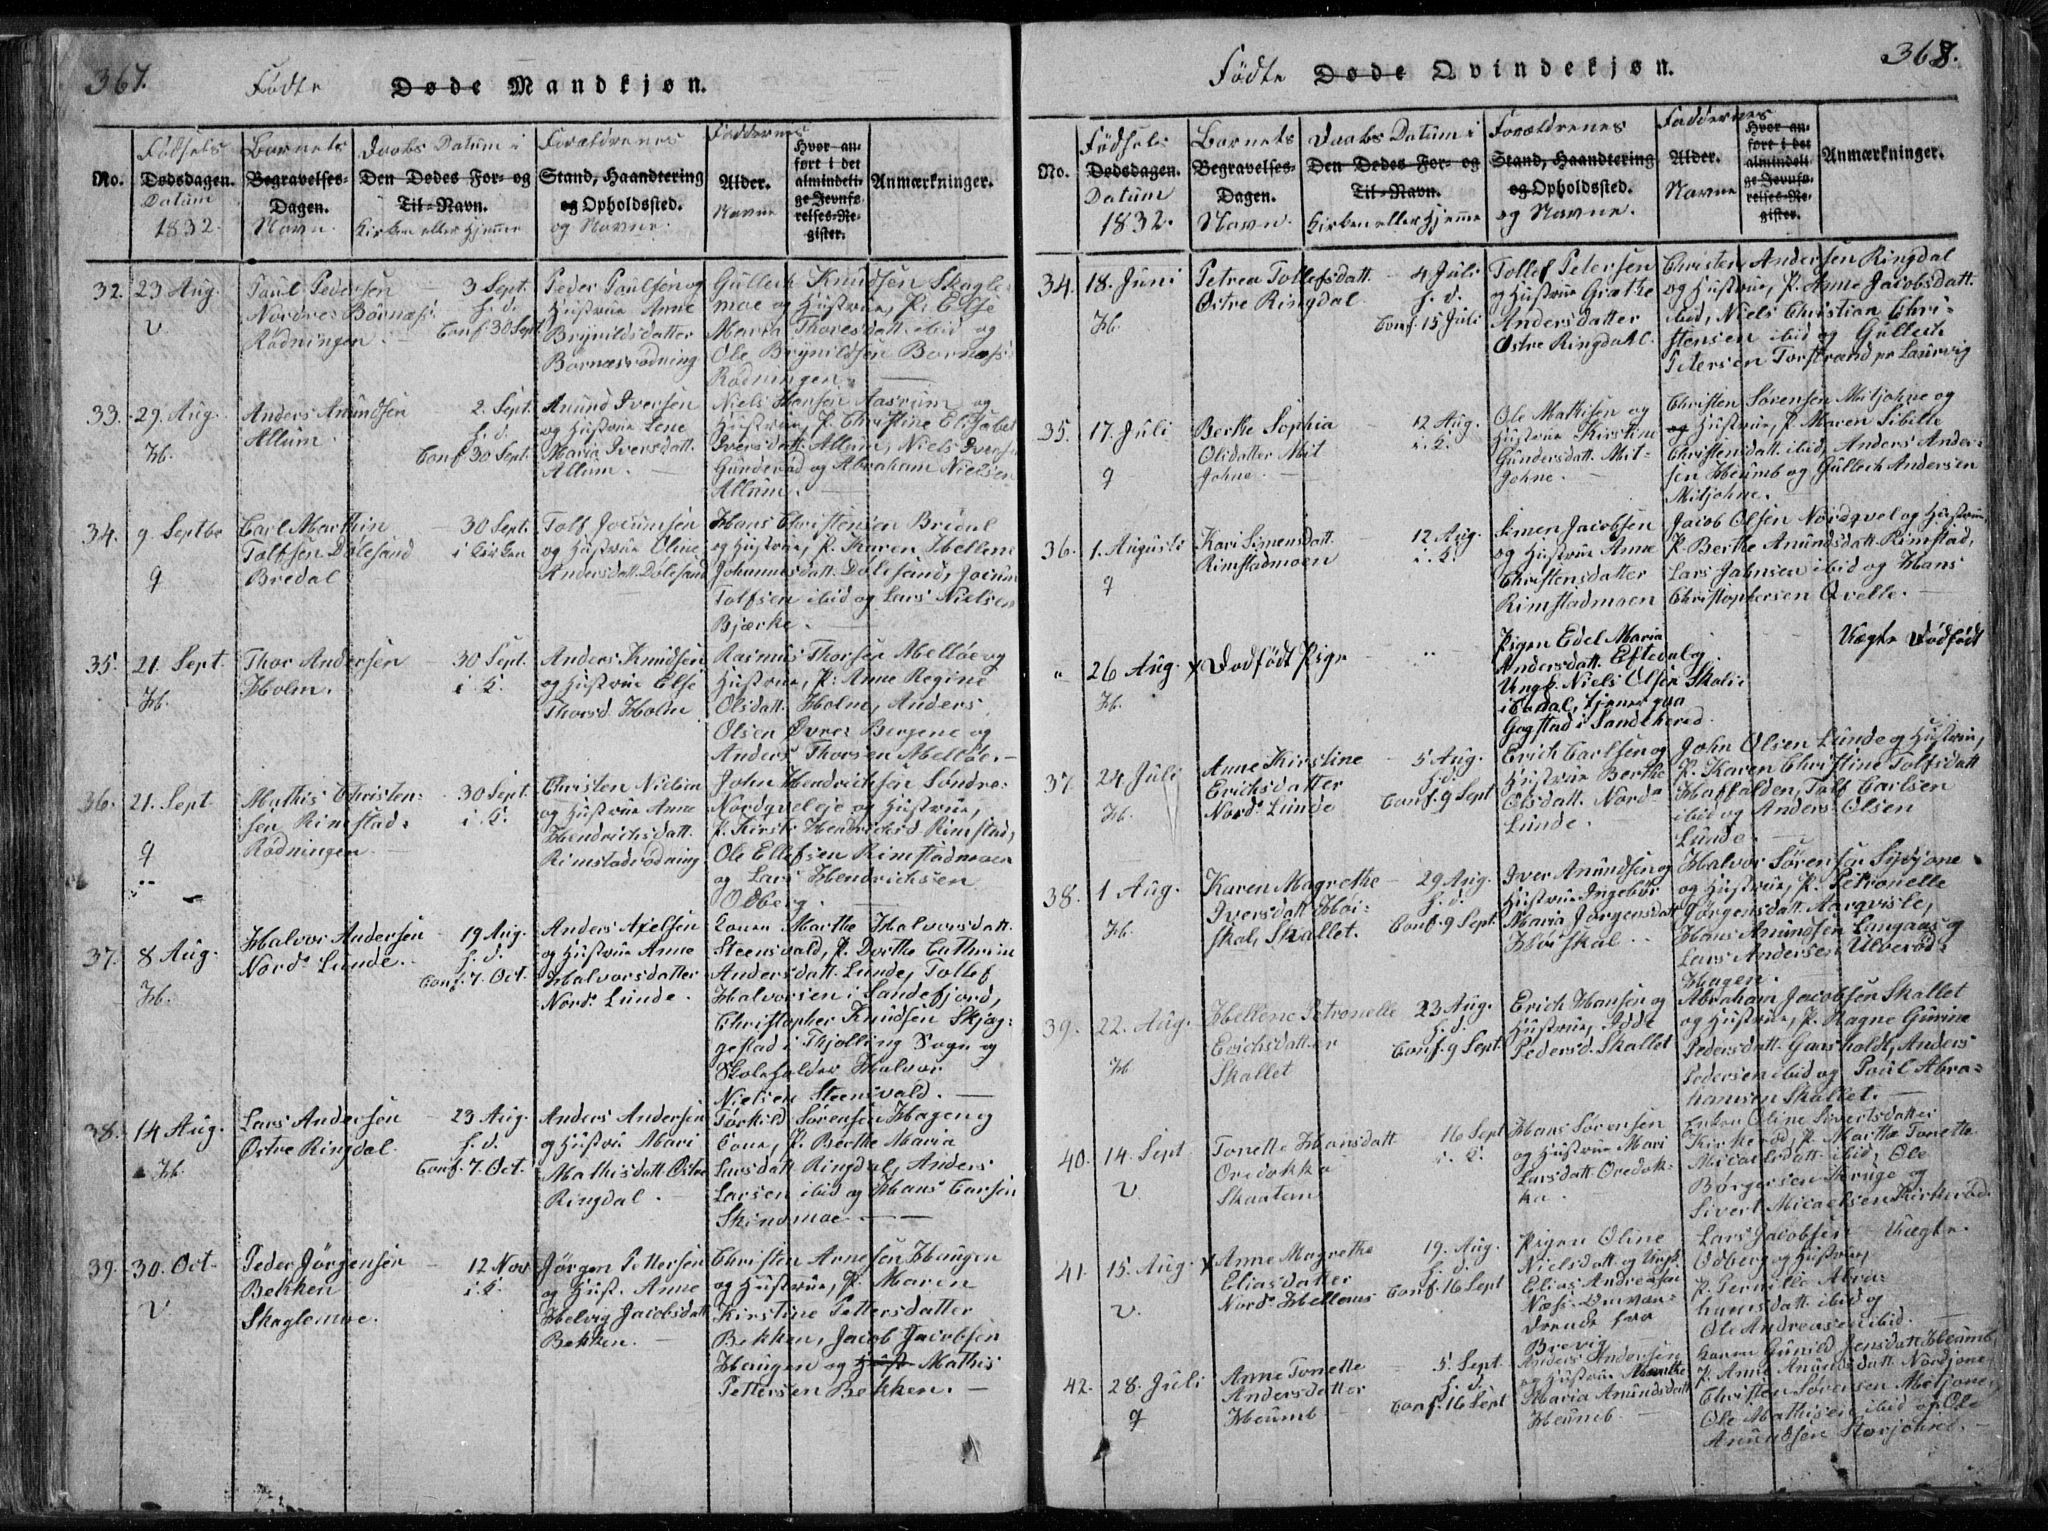 367.
Födte Døde Mandkjøn.
No.
Födsels
Dødsdagen.
Datum
1832.
Barnets
Begravelses-
Dagen.
Navn.
Daabs Datum i
Den Dødes For- og
Til-Navn.
Kirken eller Hjemme
Forældrenes
Stand, Haandtering
og Opholdssted.
og Navne.
Faddernes
Alder.
Navne
Hvor an-
ført i det
almindeli-
ge Jevnfø-
relses-Re-
gister.
Anmærkninger.
32. 23 Aug.
V
Paul Pedersen
Nordre Bornæs
Rödningen.
3 Sept.
h. d.
Conf 30 Sept.
Peder Paulsen og
Hustrue Anne
Brynildsdatter
Bornæsrödning
Gullech Knudsen Skagle-
moe og Hustrue, P. Else
Maria Thoresdatt. ibid og
Ole Brynildsen Bornæs
Rödningen.
33. 29. Aug.
Hb.
Anders Anundsen
Allum.
2. Sept.
h. d.
Conf 30 Sept.
Anund Iversen
og Hustrue Lene
Maria Iversdatt.
Allum.
Niels Hansen Aasrum og
Hustrue, P. Christine Elisabet
Iversdatt. Allum, Niels Iversen
Gunderöd og Abraham Nielsen
Allum.
34. 9 Septbr
q
Carl Marthin
Tolfsen Dölesand
Bredal
30 Sept.
i Kirken
Tolf Jocumsen
og Hustrue Oline
Andersdatt. Dölesand
Hans Christensen Bredal
og Hustrue, P. Karen Hellene
Johannesdatt. Dölesand, Jocum
Tolfsen ibid og Lars Nielsen
Bjærke.
35. 21. Sept.
Hb.
Thor Andersen
Holm.
30 Sept.
i. K.
Anders Knudsen
og Hustrue Else
Thorsd. Holm
Rasmus Thorsen Mellöe og
Hustrue, P. Anne Regine
Olsdatt. Holm, Anders
Olsen Øvre Bergene og
Anders Thorsen Mellöe.
36. 21. Sept
q
Mathis Christen-
sen Rimstad-
Rödningen
30 Sept.
i. K.
Christen Nielsen
og Hustrue Anne
Hendrichsdatt.
Rimstadrödning
John Hendrichsen Söndre
Nordqveleje og Hustrue,
P. Kirsti Hendrichsd Rimstad,
Ole Ellefsen Rimstadmoen
og Lars Hendrichsen
Odberg.
37. 8 Aug.
Hb.
Halvor Andersen
Nord. Lunde.
19 Aug.
h. d.
Conf. 7. Oct.
Anders Axelsen
og Hustrue Anne
Halvorsdatter
Nord. Lunde.
Konen Marthe Halvorsdatt.
Steensvald, P. Dorthe Cathrin
Andersdatt. Lunde, Tollef
Halvorsen i Sandefjord,
Christopher Knudsen Skjeg-
gestad i Thjölling Sogn og
Skoleholder Halvor
Nielsen Steensvald.
38. 14 Aug.
Hb.
Lars Andersen
Østre Ringdal.
23 Aug.
h. d.
Conf. 7. Oct.
Anders Andersen
og Hustrue Mari
Mathisdatt. Østre
Ringdal.
Torkild Sörensen Hagen og
Kone, P. Berthe Maria
Larsdatt. Ringdal, Anders
Larsen ibid og Hans Carsen
Skindmoe
39. 30. Oct.
V
Peder Jörgensen
Bekken
Skaglemoe.
12 Nov
i. K.
Jörgen Pettersen
og Hust. Anne
Helvig Jacobsdatt
Bekken.
Christen Arnesen Haugen
og Hustrue, P. Maren
Kirstine Pettersdatter
Bekken, Jacob Jacobsen
Haugen og Hust Mathis
Pettersen Bekken.
368.
Födte Døde Qvindekjøn.
No.
Födsels
Dødsdagen.
Datum
1832.
Barnets
Begravelses-
Dagen.
Navn.
Daabs Datum i
Den Dødes For- og
Til-Navn.
Kirken eller Hjemme
Forældrenes
Stand, Haandtering
og Opholdssted.
og Navne.
Faddernes
Alder.
Navne
Hvor an-
ført i det
almindeli-
ge Jevnfø-
relses-Re-
gister.
Anmærkninger.
34. 18. Juni
Hb.
Petrea Tollefsdatt.
Østre Ringdal
4 Juli
h. d.
Conf. 15 Juli
Tollef Petersen
og Hustrue Grethe
Andersdatter
Østre Ringdal.
Christen Andersen Ringdal
og Hustrue, P. Anne Jacobsdatt.
ibid, Niels Christian Chri-
stensen ibid og Gullech
Petersen Torstrand pr Laurvig
35. 17. Juli
q
Berthe Sophia
Olsdatter Mit
Johne.
12 Aug.
i. K.
Ole Mathisen og
Hustrue Kirstine
Gundersdatt. Mit-
Johne.
Christen Sörensen Mitjohne og
og Hustrue, P. Maren Sibille
Christensdatt. ibid, Anders Ander-
sen Heumb og Gullech Andersen
Mitjohne.
36. 1. Augusti
q
Kari Simensdatt.
Rimstadmoen
12 Aug.
i. K.
Simen Jacobsen
og Hustrue Anne
Christensdatter
Rimstadmoen
Jacob Olsen Nordqvel og Hustrue,
P. Berthe Anundsdatt. Rimstad,
Lars Jahnsen ibid og Hans
Christophersen Qvelle.
" 26 Aug.
Hb.
x Dödfödt Pige
"
Pigen Edel Maria
Andersdatt. Eftedal og
Ungk. Niels Olsen Skoli
i Hedal, tjener paa
Gogstad i Sandeherred.
Uægte Dödfödt
37. 24. Juli
Hb.
Anne Kirstine
Erichsdatter
Nord. Lunde
5 Aug.
h. d.
Conf. 9 Sept
Erich Carlsen og
Hustrue Berthe
Olsdatt. Nord.
Lunde.
John Olsen Lunde og Hustrue,
P. Karen Christine Tolfsdatt
Haffalden, Tolf Carlsen
ibid og Anders Olsen
Lunde.
38. 1 Aug.
Hb.
Karen Magrethe
Iversdatt. Hoi-
skal, Skallet.
29 Aug.
h. d.
Conf. 9 Sept.
Iver Anundsen og
Hustrue Ingebor
Maria Jörgensdatt
Hoiskal.
Halvor Sörensen
og Hustrue, P. Petronelle
Jörgensdatt. Aarqvisle,
Hans Anundsen Langaas og
Lars Andersen Ulveröd-
Hagen.
39. 22. Aug.
Hb
Hellene Petronelle
Erichsdatter
Skallet
23 Aug.
h. d.
Conf. 9 Sept.
Erich Hansen og
Hustrue, Idde
Pedersd. Skallet
Abraham Jacobsen Skallet
og Hustrue, P. Ragne Gurine
Pedersdatt. Gaasholdt, Anders
Pedersen ibid og Poul Abra-
hamsen Skallet.
40. 14. Sept
V.
Tonette Hansdatt
Oredokka
Skaaten
16 Sept
i. K.
Hans Sörensen
og Hustrue Mari
Larsdatt. Oredok-
ka.
Enken Oline Sivertsdatter
Kirkeröd, P. Marthe Tonette
Micaelsdatt. ibid, Ole
Börgersen Skruge og
Sivert Micaelsen Kirkeröd.
41. 15. Aug.
V.
x Anne Magrethe
Eliasdatter
Nord. Hellems
19. Aug.
h. d.
Conf. 16 Sept
Pigen Oline
Nielsdatt. og Ungk.
Elias Andreasen
Næs. Omvan-
drende fra
Brevig
Lars Jacobsen
Odberg og Hustrue,
P. Pernille Abra-
hamsdatt. ibid og
Ole Andreasen ibid.
Uægte.
42. 28. Juli
q
Anne Tonette
Andersdatter
Heumb
5. Sept.
h. d.
Conf. 16 Sept
Anders Andersen
og Hustrue Marthe
Maria Anundsdatt
Heumb.
Karen Gunild Jensdatt. Heumb,
P. Anne Anundsdatt. Nordjone,
Christen Sörensen Mitjone,
Ole Mathisen ibid og Ole
Anundsen Storjohne.